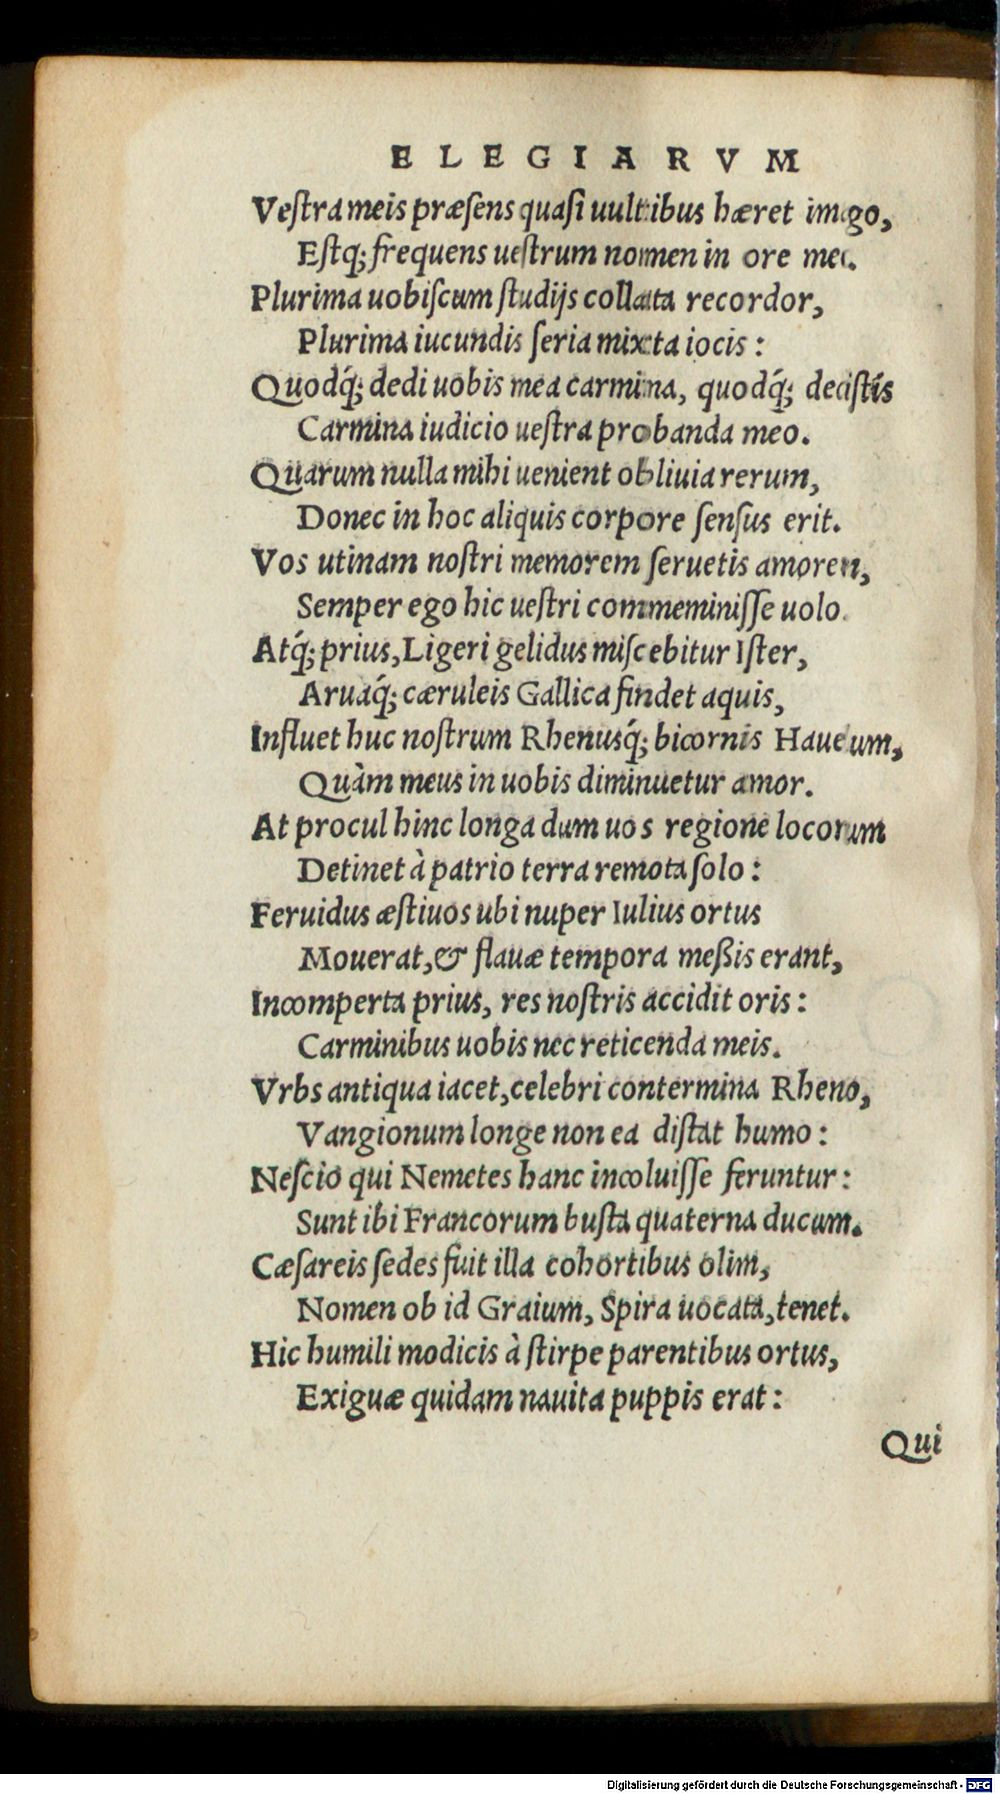 ELEGIARVM
Veſtra meis præſens quaſi uultibus hæret imago,
Eſtq́; frequens ueſtrum nomen in ore meo.
Plurima uobiſcum ſtudijs collata recordor,
Plurima iucundis ſeria mixta iocis:
Quodq́; dedi uobis mea carmina, quodq́; dediſtis
Carmina iudicio ueſtra probanda meo.
Quarum nulla mihi uenient obliuia rerum,
Donec in hoc aliquis corpore ſenſus erit.
Vos utinam noſtri memorem ſeruetis amorem,
Semper ego hic ueſtri commeminiſſe uolo.
Atq́; prius, Ligeri gelidus miſcebitur Iſter,
Aruaq́; cæruleis Gallica findet aquis,
Influet huc noſtrum Rhenusq́; bicornis Hauelum,
Quàm meus in uobis diminuetur amor.
At procul hinc longa dum uos regione locorum
Detinet à patrio terra remota ſolo:
Feruidus æſtiuos ubi nuper Iulius ortus
Mouerat, & flauæ tempora meßis erant,
Incomperta prius, res noſtris accidit oris:
Carminibus uobis nec reticenda meis.
Vrbs antiqua iacet, celebri contermina Rheno,
Vangionum longe non ea diſtat humo:
Neſcio qui Nemetes hanc incoluiſſe feruntur:
Sunt ibi Francorum buſta quaterna ducum.
Cæſareis ſedes fuit illa cohortibus olim,
Nomen ob id Graium, Spira uocata, tenet.
Hic humili modicis à ſtirpe parentibus ortus,
Exiguæ quidam nauita puppis erat:
Qui
Digitalisierung gefördert durch die Deutsche Forschungsgemeinschaft - DFG